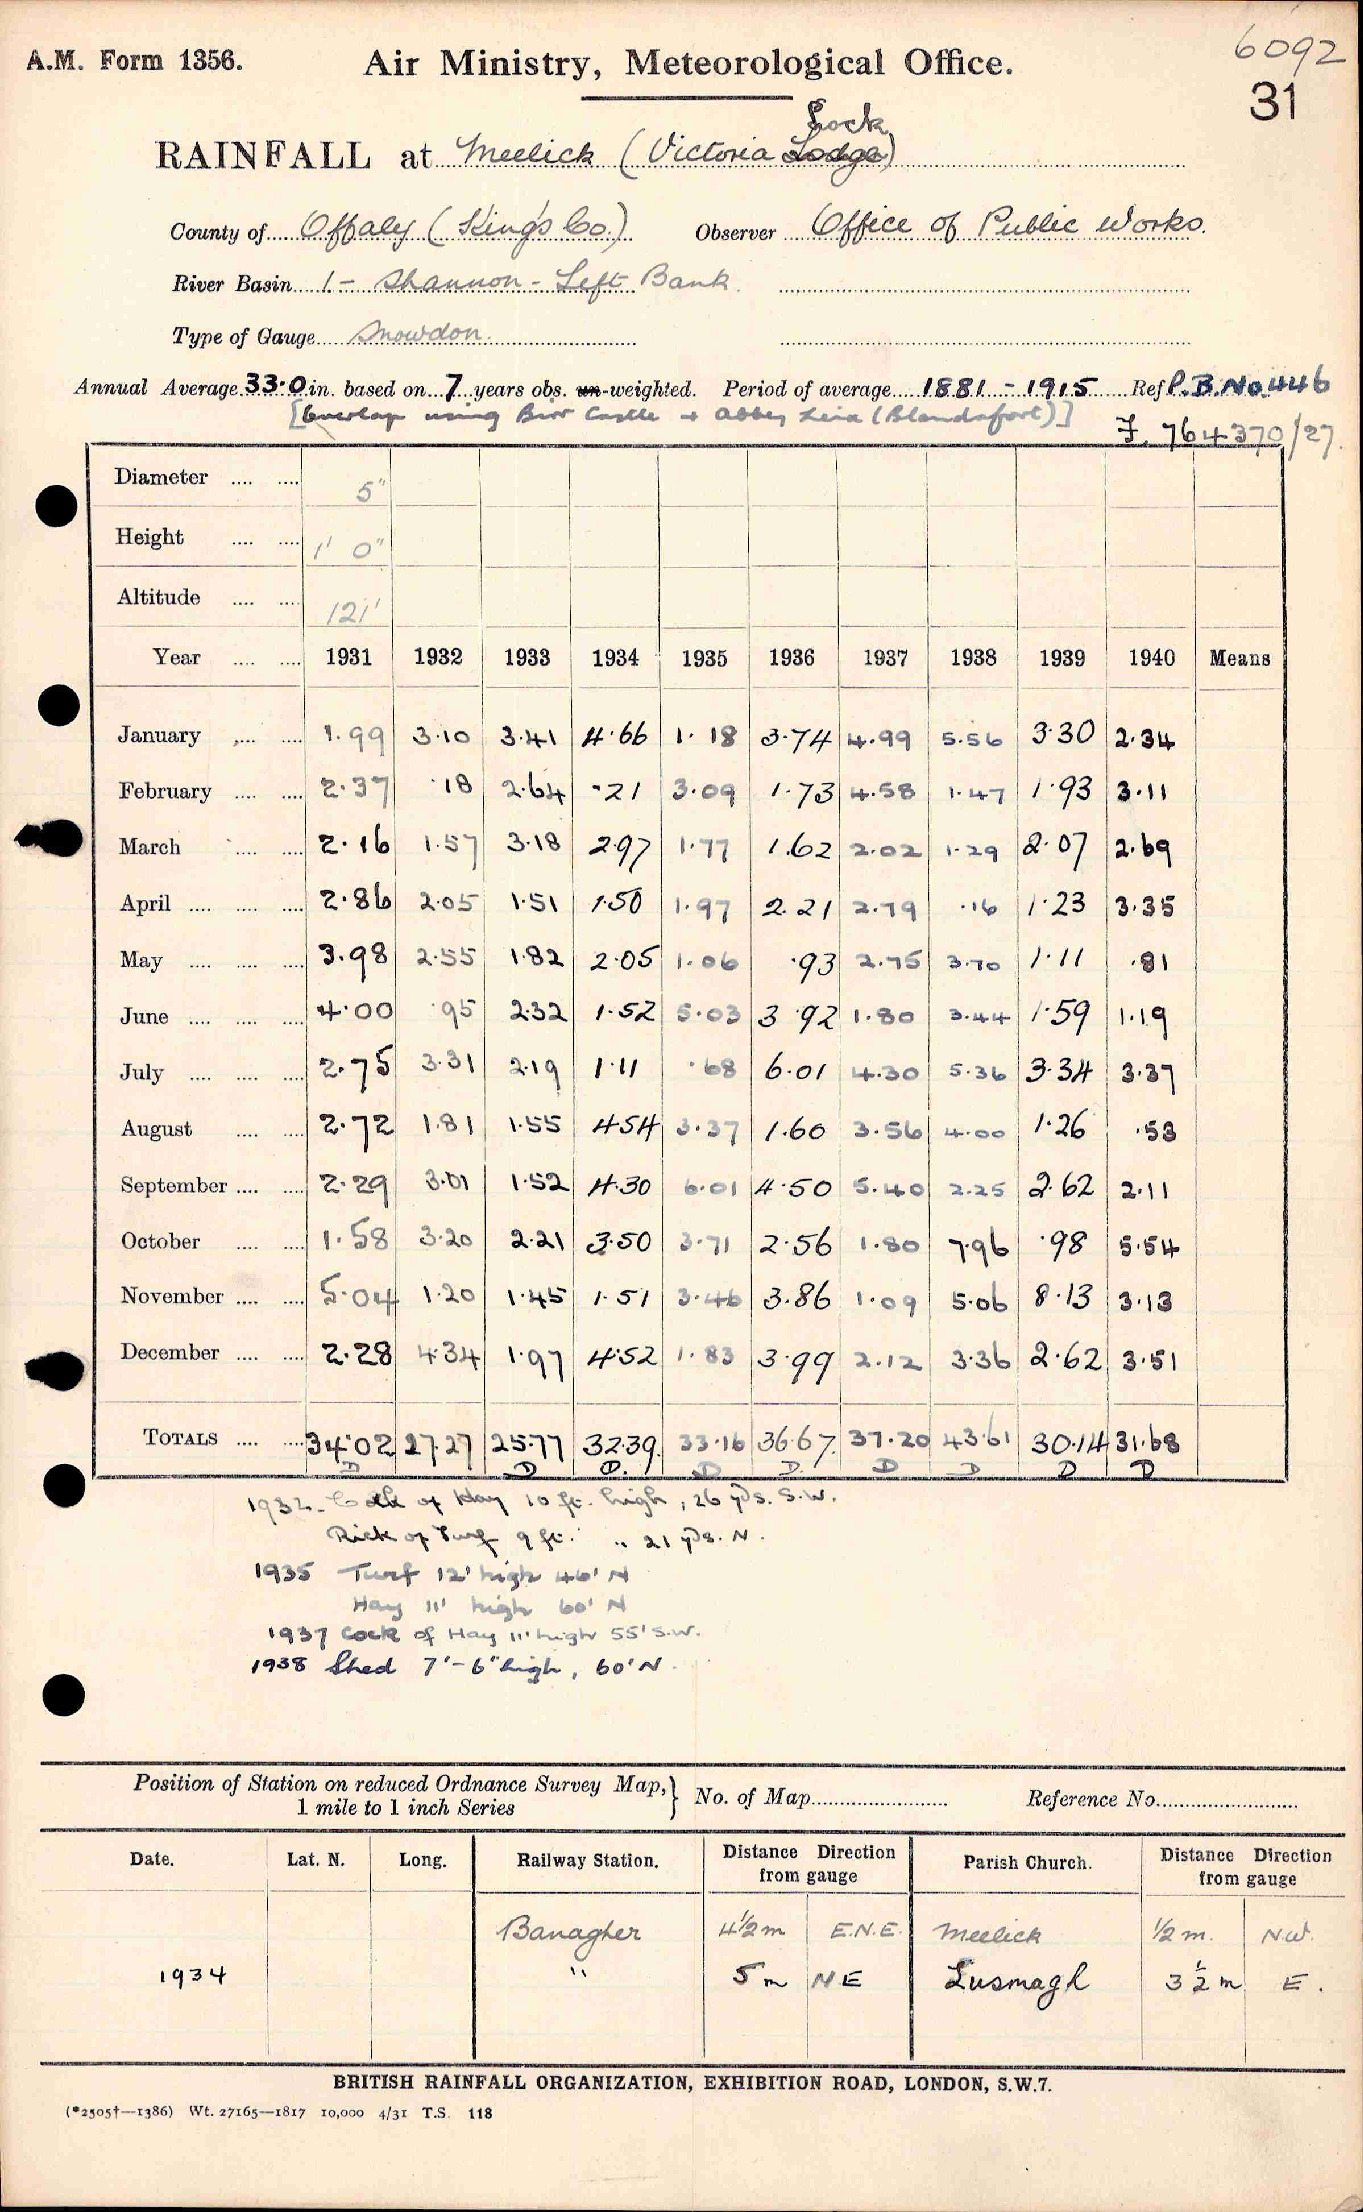 6092
A.M. Form 1356. Air Ministry, Meteorological Office.
31
Lock
RAINFALL at Meelick (Victoria Lodge)
County of Offaly (King's Co.) Observer Office of Public Works.
River Basin 1 - Shannon - Left Bank.
Type of Gauge Snowdon.
Annual Average 33.0 in. based on 7 years obs. un-weighted. Period of average 1881 - 1915 Ref P.B.No.446
[Overlap using Birr Castle + Abbey Leix (Blandsfort)]
F. 764370/27.
Diameter .... .... 5"
Height .... .... 1' 0"
Altitude .... .... 121'
Year .... .... 1931 1932 1933 1934 1935 1936 1937 1938 1939 1940 Means
January .... .... 1.99 3.10 3.41 4.66 1.18 3.74 4.99 5.56 3.30 2.34
February .... .... 2.37 .18 2.64 .21 3.09 1.73 4.58 1.47 1.93 3.11
March .... .... 2.16 1.57 3.18 2.97 1.77 1.62 2.02 1.29 2.07 2.69
April .... .... .... 2.86 2.05 1.51 1.50 1.97 2.21 2.79 .16 1.23 3.35
May .... .... .... 3.98 2.55 1.82 2.05 1.06 .93 2.75 3.70 1.11 .81
June .... .... .... 4.00 .95 2.32 1.52 5.03 3.92 1.80 3.44 1.59 1.19
July .... .... .... 2.75 3.31 2.19 1.11 .68 6.01 4.30 5.36 3.34 3.37
August .... .... 2.72 1.81 1.55 4.54 3.37 1.60 3.56 4.00 1.26 .53
September .... .... 2.29 3.01 1.52 4.30 6.01 4.50 5.40 2.25 2.62 2.11
October .... .... 1.58 3.20 2.21 3.50 3.71 2.56 1.80 7.96 .98 5.54
November .... .... 5.04 1.20 1.45 1.51 3.46 3.86 1.09 5.06 8.13 3.13
December .... .... 2.28 4.34 1.97 4.52 1.83 3.99 2.12 3.36 2.62 3.51
TOTALS .... .... 34.02 27.27 25.77 32.39. 33.16 36.67. 37.20 43.61 30.14 31.68
D D D. D D. D D D D
1932 - Cock of Hay 10 ft. high, 26 yds. S.W.
Rick of Turf 9 ft. " 21 yds. N.
1935 Turf 12' high 46' N
Hay 11' high 60' N
1937 Cock of Hay 11' high 55' S.W.
1938 Shed 7'-6" high, 60' N.
Position of Station on reduced Ordnance Survey Map,} 1 mile to 1 inch Series No. of Map Reference No.
Date. Lat. N. Long. Railway Station. Distance Direction from gauge Parish Church. Distance Direction from gauge
Banagher 4½ m E.N.E. Meelick ½ m. N.W.
1934 " 5 m NE Lusmagh 3½ m E.
BRITISH RAINFALL ORGANIZATION, EXHIBITION ROAD, LONDON, S.W.7.
(*2505†—1386) Wt. 27165—1817 10,000 4/31 T.S. 118